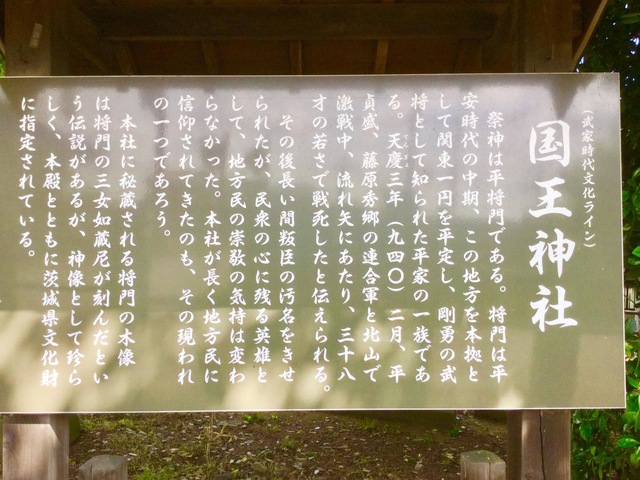 （武家時代文化ライン）
国王神社
祭神は平将門である。将門は平
安時代の中期、この地方を本拠と
して関東一円を平定し、剛勇の武
将として知られた平家の一族であ
る。天慶三年（九四〇）二月、平
貞盛、藤原秀郷の連合軍と北山で
激戦中、流れ矢にあたり、三十八
才の若さで戦死したと伝えられる。
その後長い間叛臣の汚名をきせ
られたが、民衆の心に残る英雄と
して、地方民の崇敬の気持は変わ
らなかった。本社が長く地方民に
信仰されてきたのも、その現われ
の一つであろう。
本社に秘蔵される将門の木像
は将門の三女如蔵尼が刻んだとい
う伝説があるが、神像として珍ら
しく、本殿とともに茨城県文化財
に指定されている。